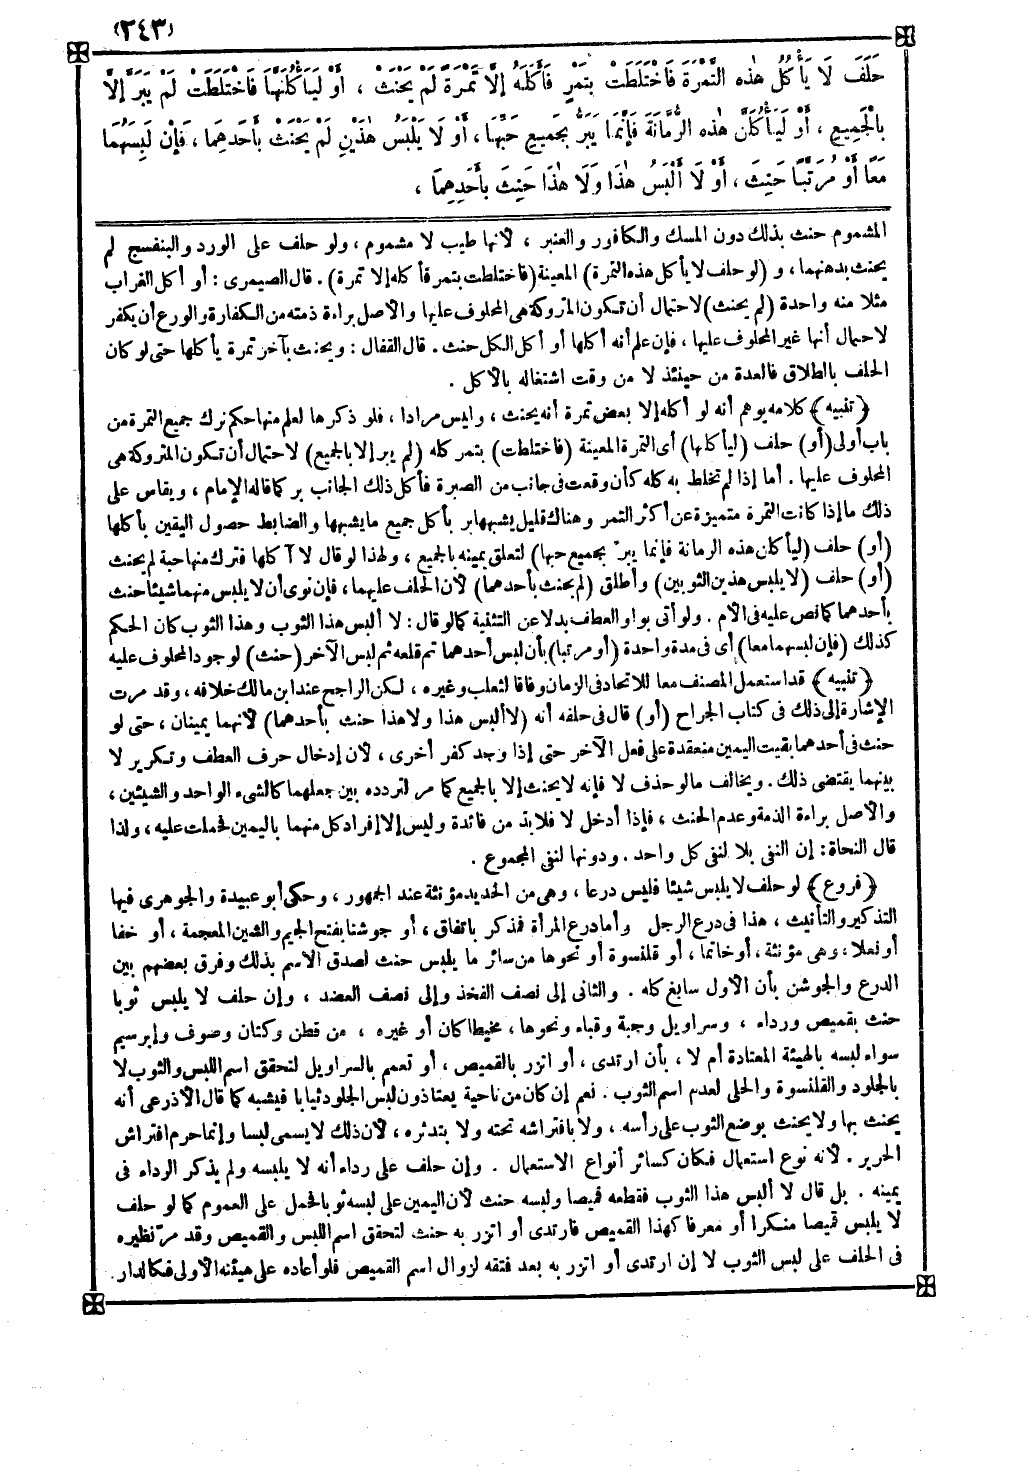 (٣٤٣)
حَلَفَ لَا يَأْكُلُ هٰذِهِ التَّمْرَةَ فَاخْتَلَطَتْ بِتَمْرٍ فَأَكَلَهُ إِلَّا تَمْرَةً لَمْ يَحْنَثْ ، أَوْ لَيَأْكُلَنَّهَا فَاخْتَلَطَتْ لَمْ يَبَرَّ إِلَّا
بِالْجَمِيعِ ، أَوْ لَيَأْكُلَنَّ هٰذِهِ الرُّمَّانَةَ فَإِنَّمَا يَبَرُّ بِجَمِيعِ حَبِّهَا ، أَوْ لَا يَلْبَسُ هٰذَيْنِ لَمْ يَحْنَثْ بِأَحَدِهِمَا ، فَإِنْ لَبِسَهُمَا
مَعًا أَوْ مُرَتَّبًا حَنِثَ ، أَوْ لَا أَلْبَسُ هٰذَا وَلَا هٰذَا حَنِثَ بِأَحَدِهِمَا ،
المشموم حنث بذلك دون المسك والكافور والعنبر ، لأنها طيب لا مشموم ، ولو حلف على الورد والبنفسج لم
يحنث بدهنهما ، و (لو حلف لا يأكل هذه التمرة) المعينة (فاختلطت بتمر فأكله إلا تمرة) . قال الصيمرى : أو أكل الغراب
مثلا منه واحدة (لم يحنث) لاحتمال أن تكون المتروكة هى المحلوف عليها والأصل براءة ذمته من الكفارة والورع أن يكفر
لاحتمال أنها غير المحلوف عليها ، فإن علم أنه أكلها أو أكل الكل حنث . قال القفال : ويحنث بآخر تمرة يأكلها حتى لو كان
الحلف بالطلاق فالعدة من حينئذ لا من وقت اشتغاله بالأكل .
﴿ تنبيه ﴾ كلامه يوهم أنه لو أكله إلا بعض تمرة أنه يحنث ، وليس مرادا ، فلو ذكرها لعلم منها حكم ترك جميع التمرة من
باب أولى (أو) حلف (ليأكلها) أى التمرة المعينة (فاختلطت) بتمر كله (لم يبر إلا بالجميع) لاحتمال أن تكون المتروكة هى
المحلوف عليها . أما إذا لم تختلط به كله كأن وقعت فى جانب من الصبرة فأكل ذلك الجانب بر كما قاله الإمام ، ويقاس على
ذلك ما إذا كانت التمرة متميزة عن أكثر التمر وهناك قليل يشبهها بر بأكل جميع ما يشبهها والضابط حصول اليقين بأكلها
(أو) حلف (ليأكلن هذه الرمانة فإنما يبرّ بجميع حبها) لتعلق يمينه بالجميع ، ولهذا لو قال لا آكلها فترك منها حبة لم يحنث
(أو) حلف (لا يلبس هذين الثوبين) وأطلق (لم يحنث بأحدهما) لأن الحلف عليهما ، فإن نوى أن لا يلبس منهما شيئا حنث
بأحدهما كما نص عليه فى الأم . ولو أتى بواو العطف بدلا عن التثنية كما لو قال : لا ألبس هذا الثوب وهذا الثوب كان الحكم
كذلك (فإن لبسهما معا) أى فى مدة واحدة (أو مرتبا) بأن لبس أحدهما ثم قلعه ثم لبس الآخر (حنث) لوجود المحلوف عليه
﴿ تنبيه ﴾ قد استعمل المصنف معا للاتحاد فى الزمان وفاقا لثعلب وغيره ، لكن الراجح عند ابن مالك خلافه ، وقد مرت
الإشارة إلى ذلك فى كتاب الجراح (أو) قال فى حلفه أنه (لا ألبس هذا ولا هذا حنث بأحدهما) لأنهما يمينان ، حتى لو
حنث فى أحدهما بقيت اليمين منعقدة على فعل الآخر حتى إذا وجد كفر أخرى ، لأن إدخال حرف العطف وتكرير لا
بينهما يقتضى ذلك . ويخالف مالو حذف لا فإنه لا يحنث إلا بالجميع كما مر لتردده بين جعلهما كالشىء الواحد والشيئين ،
والأصل براءة الذمة وعدم الحنث ، فإذا أدخل لا فلابد من فائدة وليس إلا إفراد كل منهما باليمين فحملت عليه ، ولذا
قال النحاة : إن النفى بلا لنفى كل واحد . ودونها لنفى المجموع .
﴿ فروع ﴾ لو حلف لا يلبس شيئا فلبس درعا ، وهى من الحديد مؤنثة عند الجمهور ، وحكى أبو عبيدة والجوهرى فيها
التذكير والتأنيث ، هذا فى درع الرجل وأما درع المرأة فمذكر باتفاق ، أو جوشنا بفتح الجيم والشين المعجمة ، أو خفا
أو نعلا ، وهى مؤنثة ، أو خاتما ، أو قلنسوة أو نحوها من سائر ما يلبس حنث لصدق الاسم بذلك وفرق بعضهم بين
الدرع والجوشن بأن الأول سابغ كله . والثانى إلى نصف الفخذ وإلى نصف العضد ، وإن حلف لا يلبس ثوبا
حنث بقميص ورداء ، وسراويل وجبة وقباء ونحوها ، مخيطا كان أو غيره ، من قطن وكتان وصوف وإبرسيم
سواء لبسه بالهيئة المعتادة أم لا ، بأن ارتدى ، أو اتزر بالقميص ، أو تعمم بالسراويل لتحقق اسم اللبس والثوب لا
بالجلود والقلنسوة والحلى لعدم اسم الثوب . نعم إن كان من ناحية يعتادون لبس الجلود ثيابا فيشبه كما قال الأذرعى أنه
يحنث بها ولا يحنث بوضع الثوب على رأسه ، ولا بافتراشه تحته ولا بتدثره ، لأن ذلك لا يسمى لبسا وإنما حرم افتراش
الحرير . لأنه نوع استعمال فكان كسائر أنواع الاستعمال . وإن حلف على رداء أنه لا يلبسه ولم يذكر الرداء فى
يمينه . بل قال لا ألبس هذا الثوب فقطعه قميصا ولبسه حنث لأن اليمين على لبسه ثوبا فحمل على العموم كما لو حلف
لا يلبس قميصا منكرا أو معرفا كهذا القميص فارتدى أو اتزر به حنث لتحقق اسم اللبس والقميص وقد مرّ نظيره
فى الحلف على لبس الثوب لا إن ارتدى أو اتزر به بعد فتقه لزوال اسم القميص فلو أعاده على هيئته الأولى فكالدار .